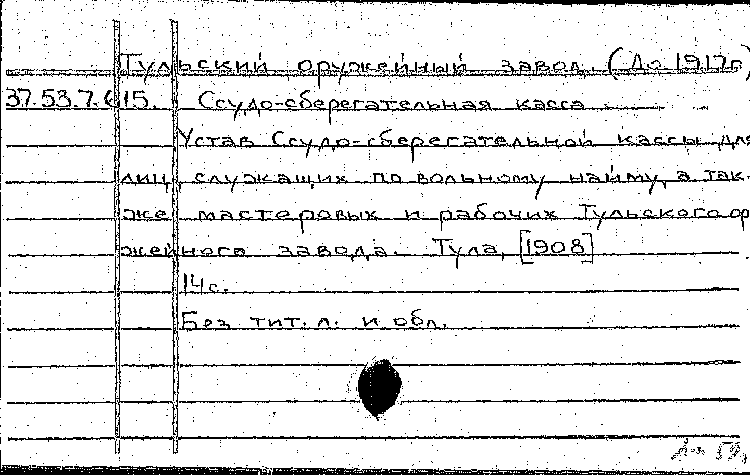 Тульский оружейный завод. (До 1917г)
37.53.7.615. Ссудо-сберегательная касса
Устав Ссудо-сберегательной кассы для
лиц, служащих по вольному найму, а так-
же мастеровых и рабочих Тульского ор
жейного завода. Тула, [1908]
14с.
Без тит. л. и обл.